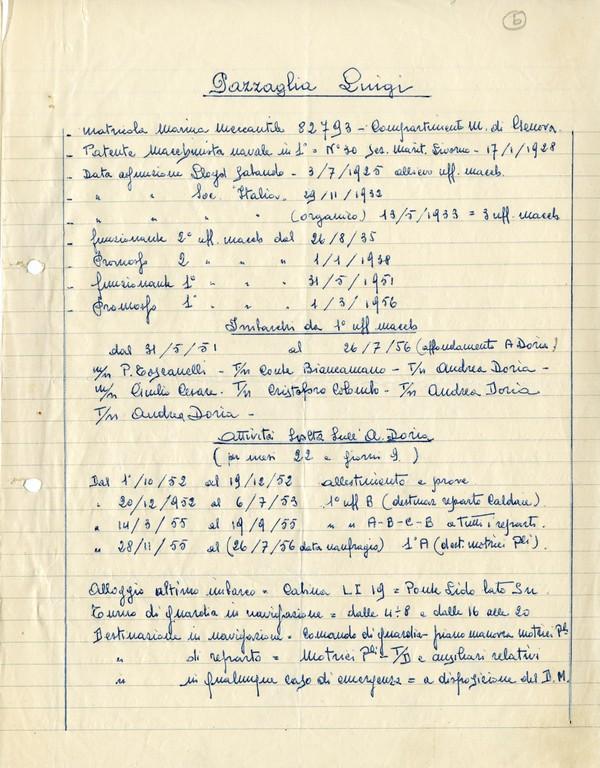 5
Pazzaglia Luigi
- Matricola Marina Mercantile 82793 - Compartimento M. di Genova.
- Patente Macchinista navale in 1° = N° 30 Sez. Marit. Livorno - 17/1/1928
- Data assunzione Lloyd Sabaudo - 3/7/1925 allievo uff. macch.
- " " Soc. "Italia" 29/11/1932
- " " " " (organico) 13/5/1933 = 3 uff. macch
- funzionante 2° uff. macch dal 26/8/35
- Promosso 2 " " " 1/1/1938
- funzionante 1° " " " 31/5/1951
- Promosso 1° " " " 1/3/1956
Imbarchi da 1° uff macch
dal 31/5/51 al 26/7/56 (affondamento A Doria)
m/n P. Toscanelli - T/n Conte Biancamano - T/n Andrea Doria -
m/n Giulio Cesare - T/n Cristoforo Colombo - T/n Andrea Doria
T/n Andrea Doria -
Attività svolta sull'A. Doria
(per mesi 22 e giorni 9)
Dal 1°/10/52 al 19/12/52 allestimento e prove
" 20/12/952 al 6/7/53 1° uff B (destinaz reparto Caldaie)
" 14/3/55 al 19/9/55 " " A-B-C-B a Tutti i reparti.
" 28/11/55 al (26/7/56 data naufragio) 1° A (dest. motrici Pli).
Alloggio ultimo imbarco = Cabina LI 19 = Ponte Lido lato Sn
Turno di guardia in navigazione = dalle 4÷8 e dalle 16 alle 20
Destinazione in navigazione = Comando di guardia - piano manovra motrici Pli
" di reparto = Motrici Pli - T/D e ausiliari relativi
" in qualunque caso di emergenza = a disposizione del D.M.